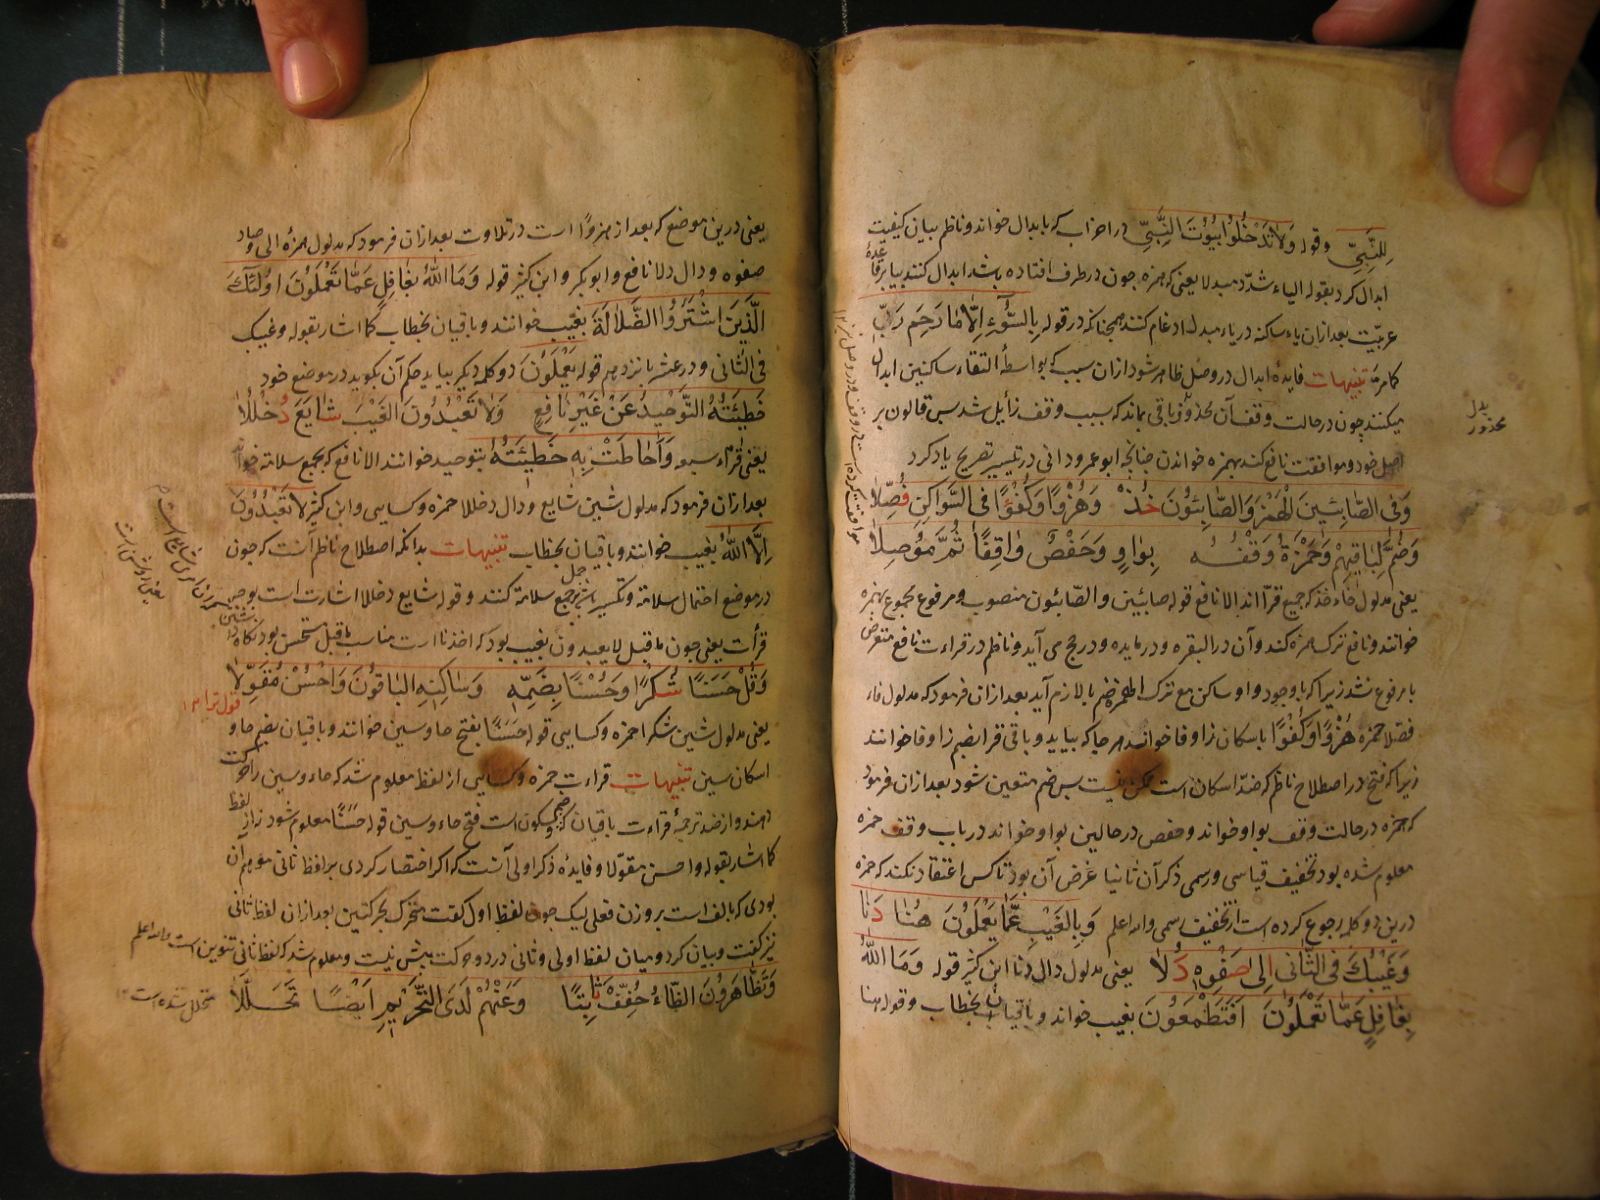 لِلنَّبِىِّ وقوله وَلَا تَدْخُلُوا بُيُوتَ النَّبِىِّ در احزاب که بابدال خواند و ناظم بیان کیفیت
ابدال کرد بقوله الیاء شدّد مبدلا یعنی که همزه چون در طرف افتاده باشد ابدال کنند بیا بر قاعدهٔ
عربیّت بعد ازان یاء ساکنه در یاء مبدله ادغام کنند همچنانکه در قوله بِالسُّوٓءِ اِلَّا مَا رَحِمَ رَبِّى
کما مرّ تنبیهات فایدهٔ ابدال در وصل ظاهر شود ازان سبب که بواسطهٔ التقاء ساکنین ابدال
میکنند چون در حالت وقف آن محذور باقی نماند که بسبب وقف زایل شد پس قالون بر
اصل خود و موافقت نافع کند بهمزه خواندن چنانچه ابو عمرو دانی در تیسیر تصریح یاد کرد
وَفِى الصَّابِئِينَ الْهَمْزُ وَالصَّابِئُونَ خُذْ وَهُزْوًا وَكُفْوًا فِى السَّوَاكِنِ فُصِّلَا
وَضُمَّ لِبَاقِيهِمْ وَحَمْزَةُ وَقْفُهُ بِوَاوٍ وَحَفْصٌ وَاقِفًا ثُمَّ مُوصِلَا
یعنی مدلول خاء خذ که جمیع قرّا اند الا نافع قوله صابئین والصّابئون منصوب و مرفوع مجموع بهمزه
خوانند و نافع ترک همزه کند وآن در البقره و در مایده و در حج می آید و ناظم در قراءت نافع متعرض
با مرفوع نشد زیرا که با وجود واو ساکن مع ترک الهمزه ضم با لازم آید بعد ازان فرمود که مدلول فاء
فصّلا حمزه هُزْوًا وَكُفْوًا باسکان زا و فا خوانند هر جا که بیاید و باقی قرا بضم زا و فا خوانند
زیرا که فتح در اصطلاح ناظم که ضدّ اسکان است ممکن نیست پس ضم متعین شود بعد ازان فرمود
که حمزه در حالت وقف بواو خواند و حفص در حالین بواو خواند در باب وقف حمزه
معلوم شده بود تخفیف قیاسی و رسمی ذکر آن ثانیا غرض آن بود تا کس اعتقاد نکند که حمزه
درین دو کلمه رجوع کرده است از تخفیف رسمی والله اعلم وَبِالْغَيْبِ عَمَّا يَعْمَلُونَ هُنَا دَنَا
وَغَيْبُكَ فِى الثَّانِى اِلٰى صَفْوِهِ دَلَا یعنی مدلول دال دنا ابن کثیر قوله وَمَا اللهُ
بِغَافِلٍ عَمَّا تَعْمَلُونَ اَفَتَطْمَعُونَ بغیب خواند و باقیان بخطاب وقوله هنا
بدل
محذور
یعنی درین موضع که بعد از هزوًا است در تلاوت بعد ازان فرمود که مدلول همزهٔ الی و صاد
صفوه و دال دلا نافع و ابو بکر و ابن کثیر قوله وَمَا اللهُ بِغَافِلٍ عَمَّا تَعْمَلُونَ اُولٰئِكَ
الَّذِينَ اشْتَرَوُا الضَّلَالَةَ بغیب خوانند و باقیان بخطاب کما اشار بقوله وغیبک
فی الثانی و در عشر پانزدهم قوله يَعْمَلُونَ دو کلمه دیگر بیاید حکم آن بگوید در موضع خود
خَطِيئَتُهُ التَّوْحِيدُ عَنْ غَيْرِ نَافِعٍ وَلَا تَعْبُدُونَ الْغَيْبَ شَايَعَ دُخْلُلَا
یعنی قرّاء سبعه وَاَحَاطَتْ بِهِ خَطِيئَتُهُ بتوحید خوانند الا نافع که بجمع سلامة خواند
بعد ازان فرمود که مدلول شین شایع و دال دخللا حمزه و کسایی و ابن کثیر لَا تَعْبُدُونَ
اِلَّا اللهَ بغیب خوانند و باقیان بخطاب تنبیهات بدانکه اصطلاح ناظم آنست که چون
در موضع احتمال سلامة و تکسیر باشد حمل بر جمع سلامة کنند و قوله شایع دخللا اشارت است بوجه
قرأت یعنی چون ما قبل لا یعبدون بغیب بود که اخذنا است مناسب ما قبل مستحسن بود
وَقُلْ حَسَنًا شُكْرًا وَحُسْنًا بِضَمِّهِ وَسَاكِنِهِ الْبَاقُونَ وَاحْسُنْ مُقَوِّلَا
یعنی مدلول شین شکرا حمزه و کسایی قوله حَسَنًا بفتح حا و سین خوانند و باقیان بضم حا و
اسکان سین تنبیهات قراءت حمزه و کسایی از لفظ معلوم شد که حاء و سین را حرکت
دهند و از ضد ترجمهٔ قراءت باقیان که ضم و سکون است فتح حاء و سین قوله حَسَنًا معلوم شود نه از لفظ
کما اشار بقوله واحسن مقوّلا و فایدهٔ ذکر اولی آنست که اگر اختصار کردی بر لفظ ثانی موهم آن
بودی که بالف است بر وزن فعلی لیک چون لفظ اول گفت متحرک بحرکتین بعد ازان لفظ ثانی
نیز گفت و بیان کرد و میان لفظ اولی و ثانی در دو حرکت بیش نیست و معلوم شد که لفظ ثانی تنوین است والله اعلم
وَتَظَّاهَرُونَ الظَّاءُ خُفِّفَ ثَابِتًا وَعَنْهُمْ لَدَى التَّحْرِيمِ اَيْضًا تَحَلَّلَا